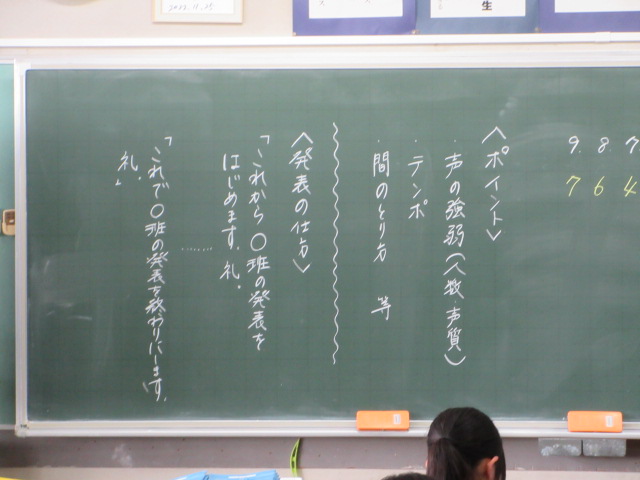 9. 8. 7
7 6 4
〈ポイント〉
・声の強弱(人数・声質)
・テンポ
・間のとり方 等
〈発表の仕方〉
「これから〇班の発表を
はじめます。礼。
………
「これで〇班の発表を終わりにします。
礼。」
生